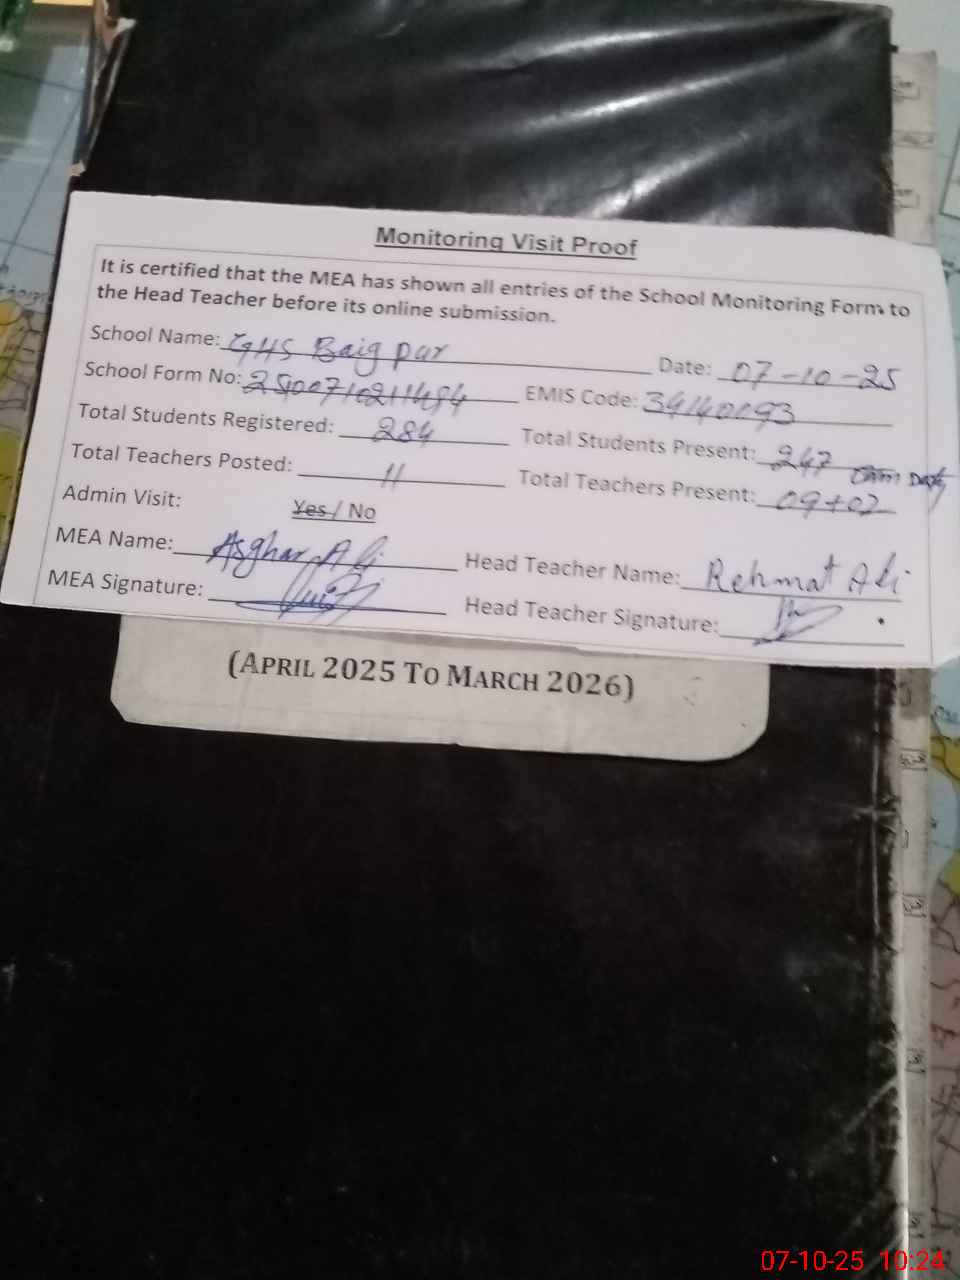 Monitoring Visit Proof
It is certified that the MEA has shown all entries of the School Monitoring Form to
the Head Teacher before its online submission.
School Name: GHS Baig pur Date: 07-10-25
School Form No: EMIS Code: 34140093
Total Students Registered: 284 Total Students Present: 247
Total Teachers Posted: 11 Total Teachers Present: 09+02
Admin Visit: Yes / No
MEA Name: Asghar Ali Head Teacher Name: Rehmat Ali
MEA Signature: Head Teacher Signature:
(APRIL 2025 TO MARCH 2026)
07-10-25 10:24